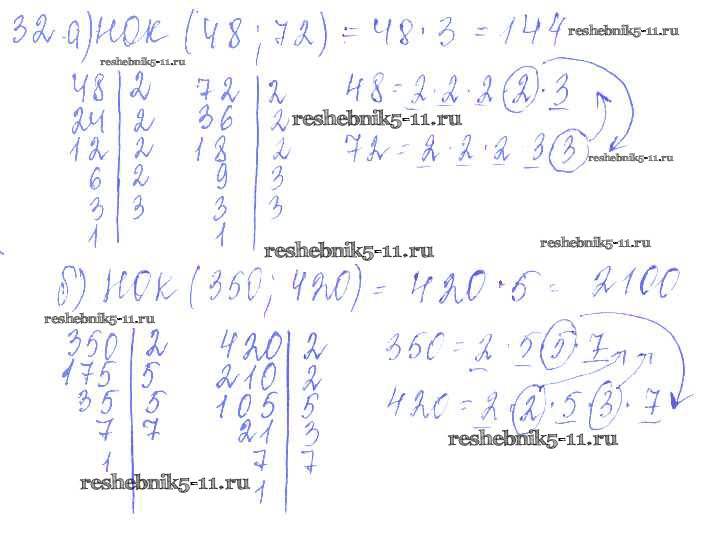 32. а) НОК (48; 72) = 48 · 3 = 144 reshebnik5-11.ru
reshebnik5-11.ru
48 | 2 72 | 2 48 = 2 · 2 · 2 · 2 · 3
24 | 2 36 | 2 reshebnik5-11.ru
12 | 2 18 | 2 72 = 2 · 2 · 2 · 3 · 3 reshebnik5-11.ru
6 | 2 9 | 3
3 | 3 3 | 3
1 | 1 |
reshebnik5-11.ru reshebnik5-11.ru
б) НОК (350; 420) = 420 · 5 = 2100
reshebnik5-11.ru
350 | 2 420 | 2 350 = 2 · 5 · 5 · 7
175 | 5 210 | 2
35 | 5 105 | 5 420 = 2 · 2 · 5 · 3 · 7
7 | 7 21 | 3 reshebnik5-11.ru
1 | 7 | 7
reshebnik5-11.ru
1 |